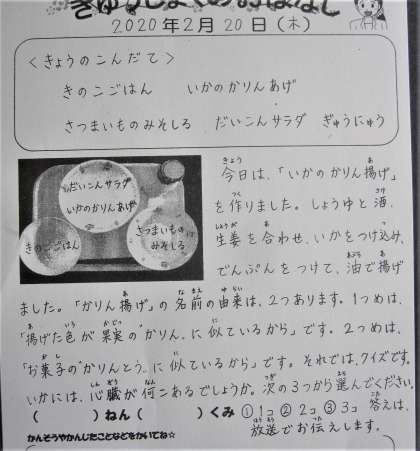 きゅうしょくのおはなし
2020年2月20日(木)
<きょうのこんだて>
きのこごはん いかのかりんあげ
さつまいものみそしる だいこんサラダ ぎゅうにゅう
だいこんサラダ
いかのかりんあげ
きのこごはん
さつまいもの
みそしる
今日は、「いかのかりん揚げ」
を作りました。しょうゆと酒、
生姜を合わせ、いかをつけ込み、
でんぷんをつけて、油で揚げ
ました。「かりん揚げ」の名前の由来は、2つあります。1つめは、
「揚げた色が果実の"かりん"に似ているから」です。2つめは、
「お菓子の"かりんとう"に似ているから」です。それでは、クイズです。
いかには、心臓が何こあるでしょうか。次の3つから選んでください。
( )ねん( )くみ ①1コ ②2コ ③3コ 答えは、
かんそうやかんじたことなどをかいてね☆ 放送でお伝えします。